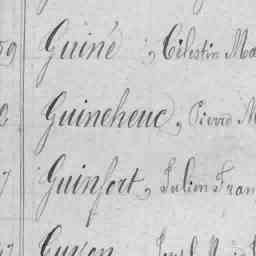 59 Guiné, Célestin Ma
Guineheuc, Pierre M
7 Guinfort, Julien Fran
Guyon